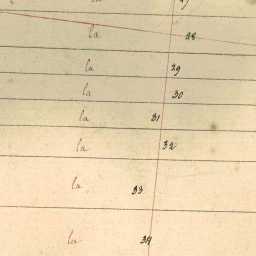 la 27
la 28
la 29
la 30
la 31
la 32
la 33
la 34